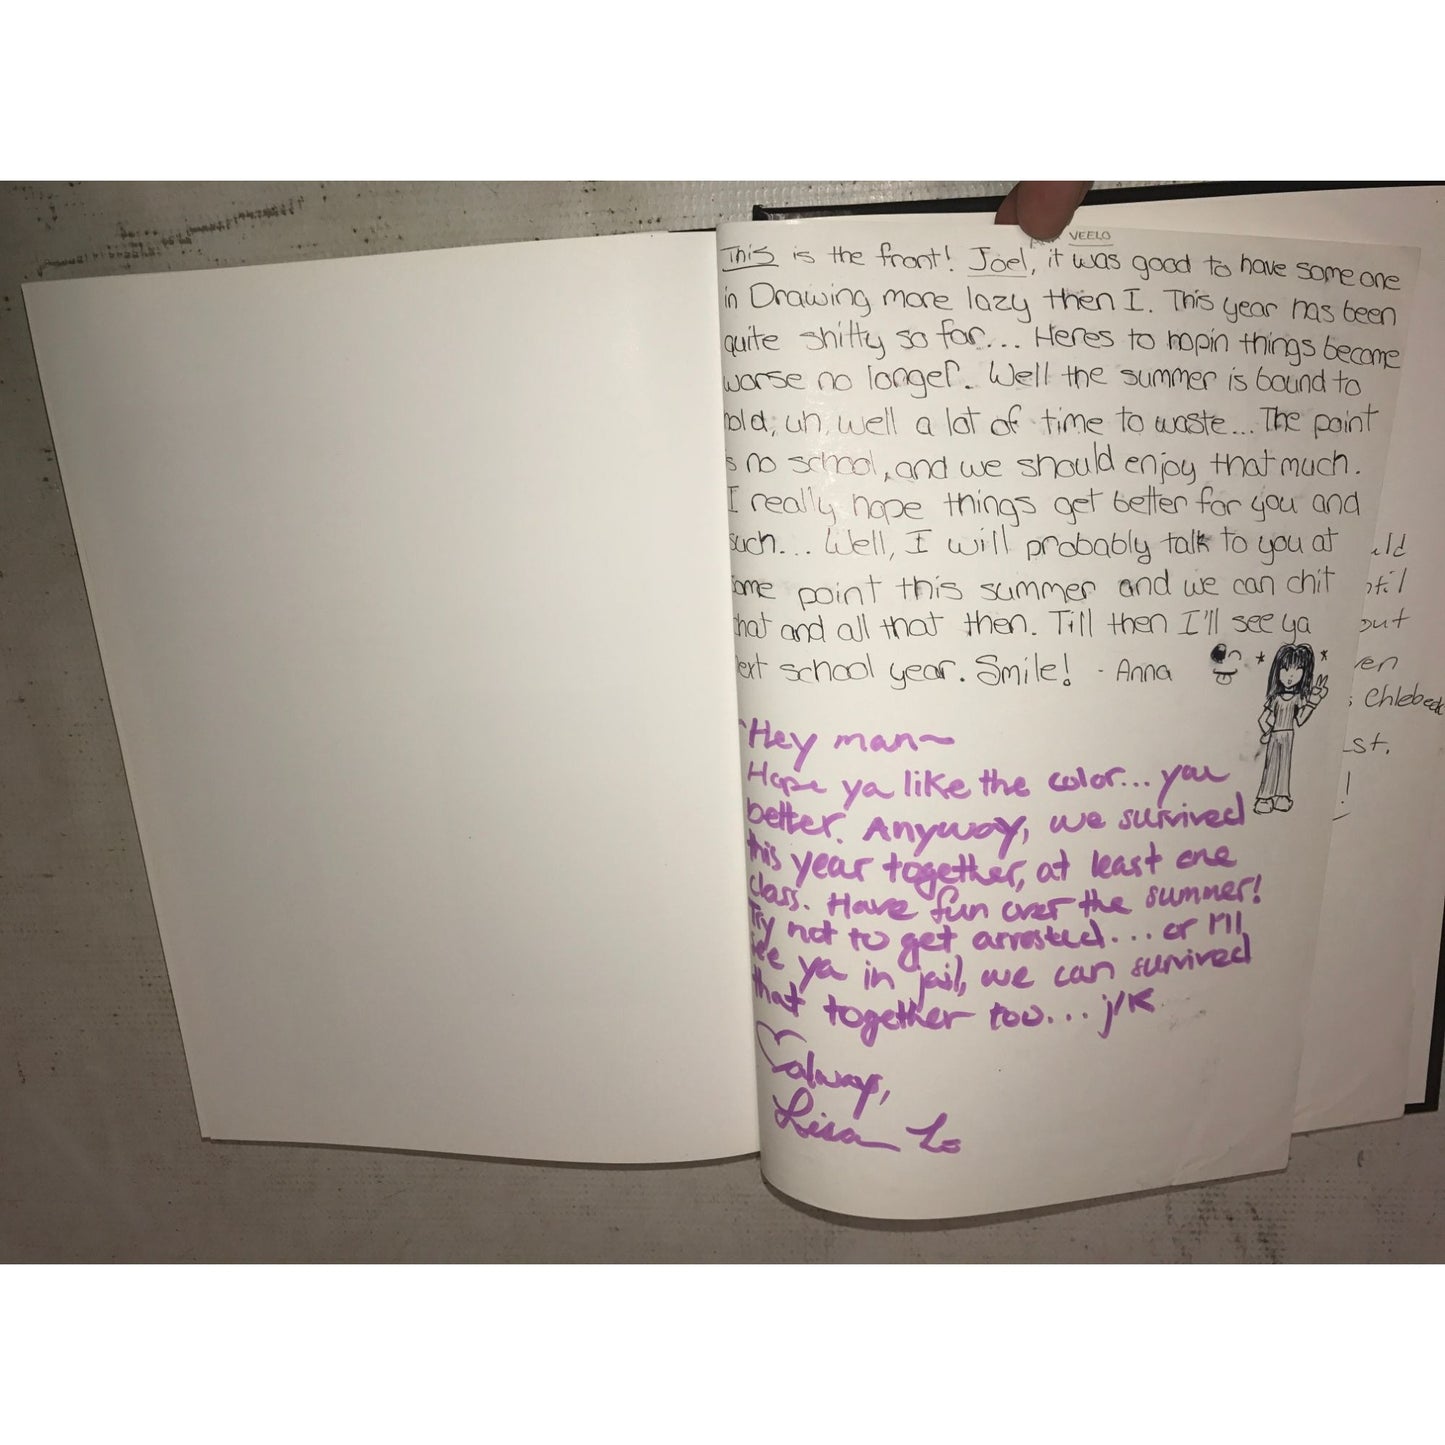 VEELO
This is the front! Joel, it was good to have some one
in Drawing more lazy then I. This year has been
quite shitty so far... Heres to hopin things become
worse no longer. Well the summer is bound to
hold, uh, well a lot of time to waste... The point
is no school, and we should enjoy that much.
I really hope things get better for you and
such... Well, I will probably talk to you at
some point this summer and we can chit
chat and all that then. Till then I'll see ya
next school year. Smile! - Anna
Hey man~
Hope ya like the color... you
better. Anyway, we survived
this year together, at least one
class. Have fun over the summer!
Try not to get arrested... or I'll
see ya in jail, we can survived
that together too... j/k
always,
Lisa Lo
out
Chlebed